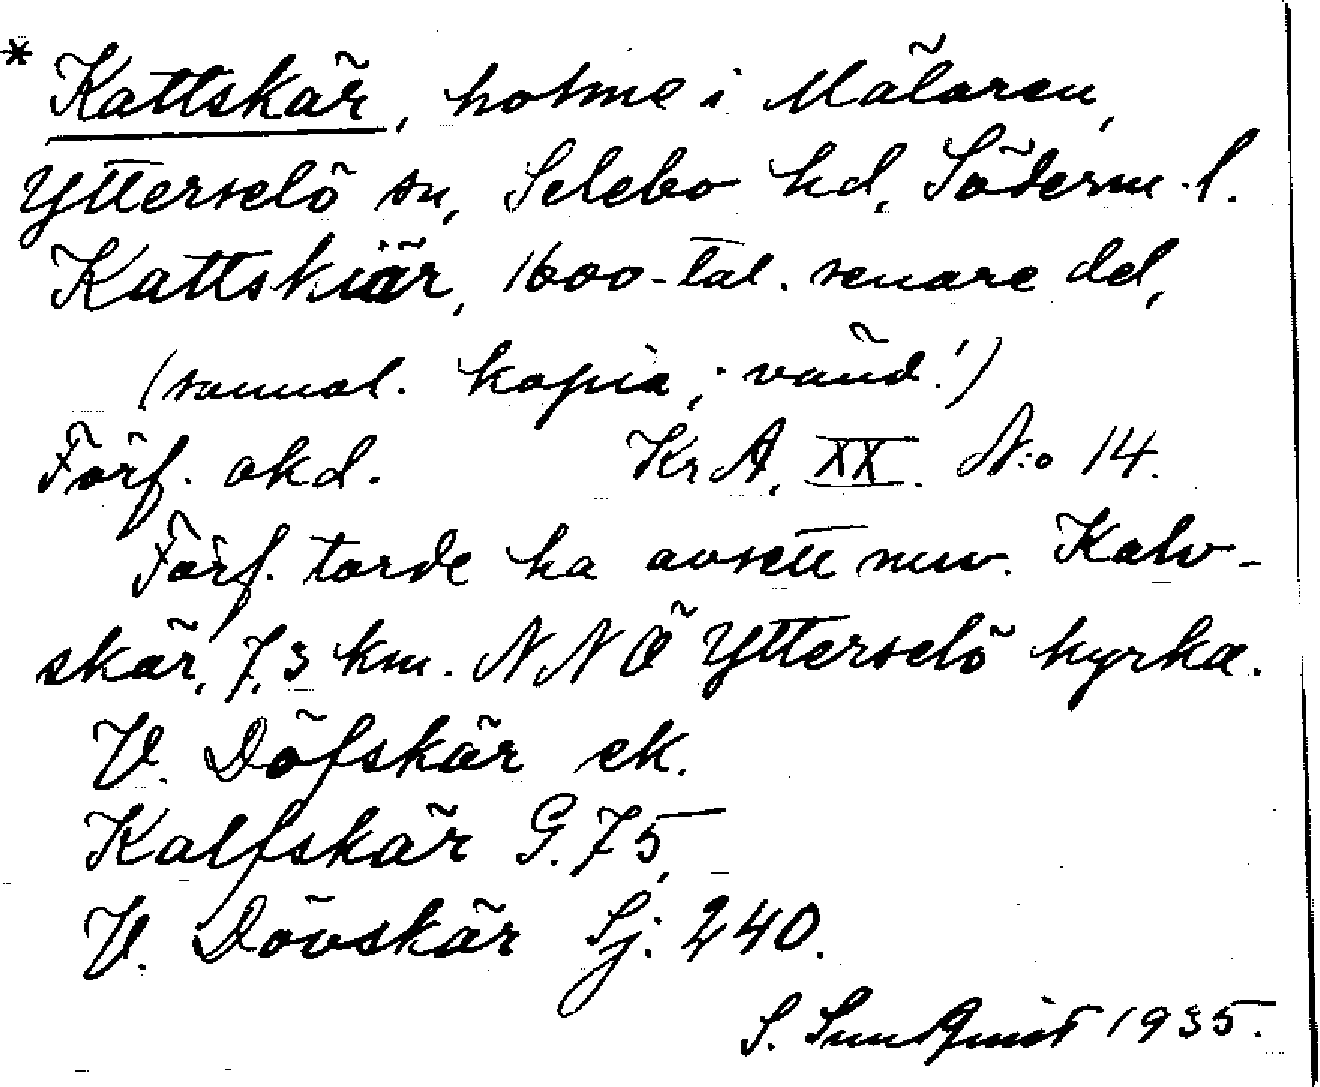 * Kattskär, holme i Mälaren,
Ytterselö sn, Selebo hd, Söderm. l.
Kattskiär, 1600-tal. senare del,
(sannol. kopia; vänd!)
Förf. okd. Kr A. XX. N:o 14.
Förf. torde ha avsett nuv. Kalv-
skär, 7,3 km. NNÖ Ytterselö kyrka.
V. Döfskär ek.
Kalfskär G. 75,
V. Dövskär Sj. 240.
S. Sundqvist 1935.